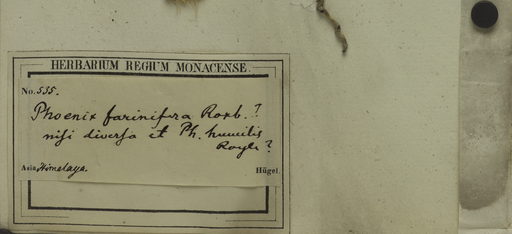 HERBARIUM REGIUM MONACENSE.
No. 535.
Phoenix farinifera Roxb.?
nisi diversa et Ph. humilis
Royle?
Asia Himalaya. Hügel.